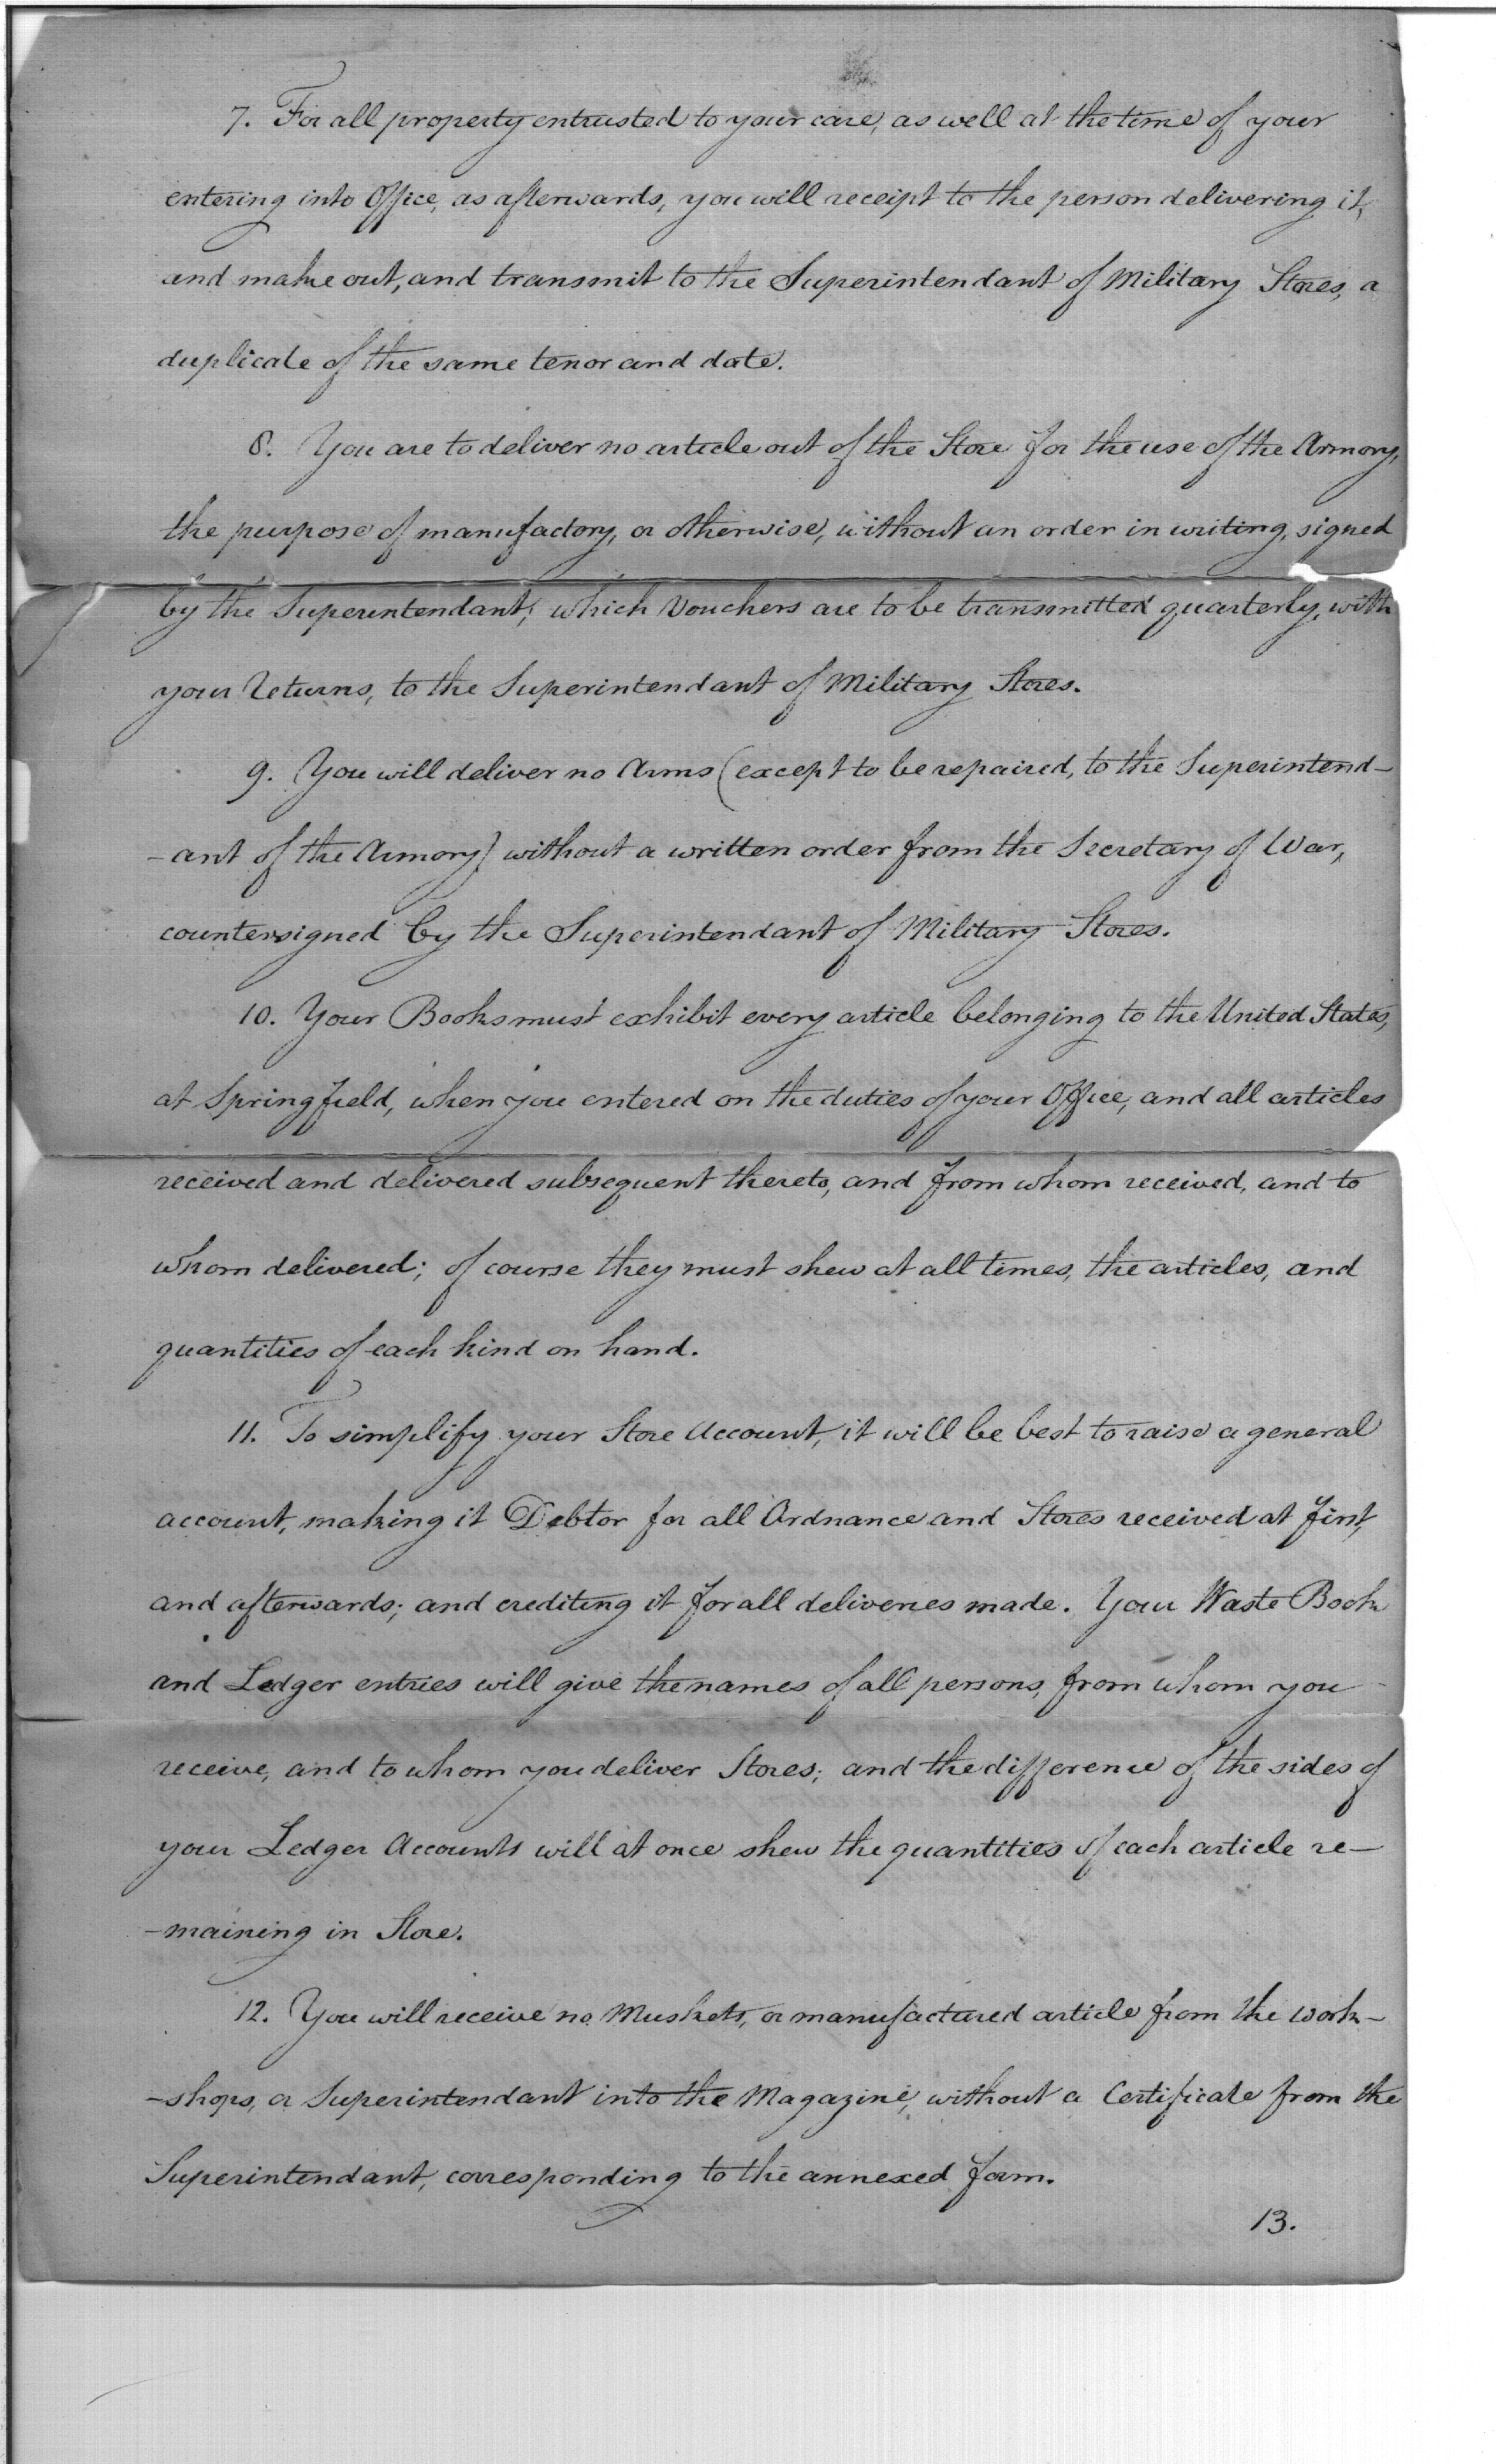 7. For all property entrusted to your care, as well at the time of your
entering into Office, as afterwards, you will receipt to the person delivering it,
and make out, and transmit to the Superintendant of Military Stores, a
duplicate of the same tenor and date.
8. You are to deliver no article out of the Store for the use of the Armory,
the purpose of manufactory, or otherwise, without an order in writing, signed
by the Superintendant; which Vouchers are to be transmitted quarterly, with
your Returns, to the Superintendant of Military Stores.
9. You will deliver no Arms (except to be repaired, to the Superintend-
-ant of the Armory) without a written order from the Secretary of War,
countersigned by the Superintendant of Military Stores.
10. Your Books must exhibit every article belonging to the United States,
at Springfield, when you entered on the duties of your Office, and all articles
received and delivered subsequent thereto, and from whom received, and to
whom delivered; of course they must shew at all times, the articles, and
quantities of each kind on hand.
11. To simplify your Store Account, it will be best to raise a general
account, making it Debtor for all Ordnance and Stores received at first,
and afterwards; and crediting it for all deliveries made. Your Waste Book
and Ledger entries will give the names of all persons, from whom you
receive, and to whom you deliver Stores; and the difference of the sides of
your Ledger Accounts will at once shew the quantities of each article re-
-maining in Store.
12. You will receive no Muskets, or manufactured article from the work-
-shops, or Superintendant into the Magazine, without a Certificate from the
Superintendant, corresponding to the annexed form.
13.